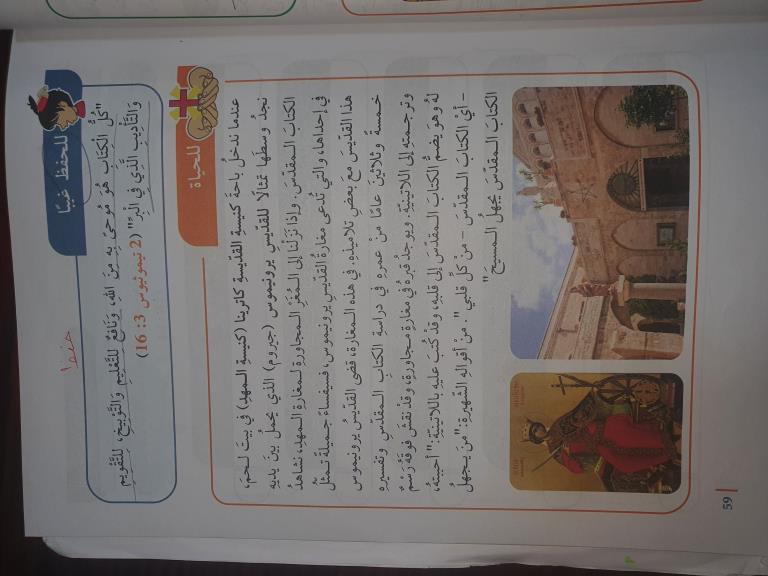 للحفظ غيبًا
حفظ!
"كُلُّ الْكِتَابِ هُوَ مُوحًى بِهِ مِنَ اللهِ، وَنَافِعٌ لِلتَّعْلِيمِ وَالتَّوْبِيخِ، لِلتَّقْوِيمِ
وَالتَّأْدِيبِ الَّذِي فِي الْبِرِّ" (2 تيموثيوس 3: 16)
للحياة
عندما ندخلُ باحةَ كنيسةِ القدّيسةِ كاترينا (كنيسة المهد) في بيتَ لحمَ،
نجدُ وسطَها تمثالًا للقدّيسِ يرونيموس (جيروم) الذي يحملُ بينَ يديهِ
الكتابَ المقدّسَ. وإذا نزَلْنا إلى المُغُرِ المجاورةِ لمغارةِ المهدِ، نشاهدُ
في إحداها، والتي تُدعى مغارةَ القدّيسِ يرونيموس، فسيفساءَ جميلةً تمثّلُ
هذا القدّيسَ مع بعضِ تلاميذِهِ. في هذه المغارةِ، قضى القدّيسُ يرونيموس
خمسةً وثلاثينَ عامًا منْ عمرِهِ في دراسةِ الكتابِ المقدّسِ وتفسيرِهِ
وترجمتِهِ إلى اللاتينيّةِ. ويوجدُ قبرُهُ في مغارةٍ مجاورةٍ، وقدْ نُقشَ فوقَهُ رَسْمٌ
لهُ وهوَ يضمُّ الكتابَ المقدّسَ إلى قلبِهِ، وقدْ كُتبَ عليهِ باللاتينيّةِ: "أحببتُهُ،
- أيْ الكتابَ المقدّسَ - منْ كلِّ قلبي". منْ أقوالِهِ الشّهيرةِ: "منْ يجهلُ
الكتابَ المقدّسَ يجهلُ المسيحَ"
59